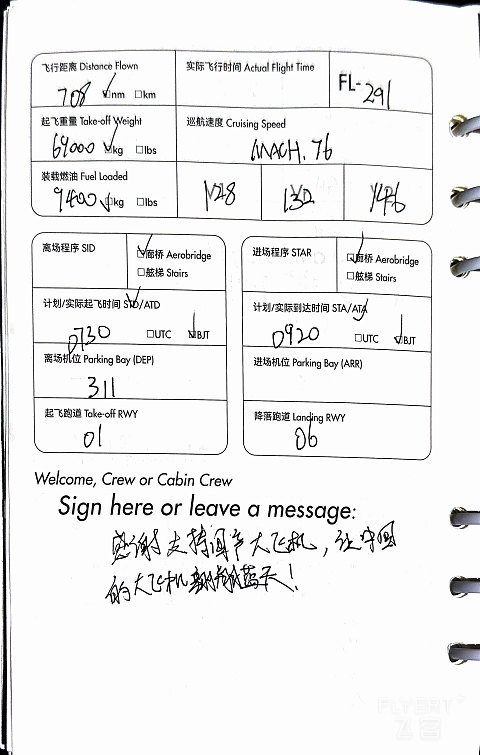 飞行距离 Distance Flown
708 ☑nm □km
实际飞行时间 Actual Flight Time
FL-291
起飞重量 Take-off Weight
69000 ☑kg □lbs
巡航速度 Cruising Speed
MACH .76
装载燃油 Fuel Loaded
9400 ☑kg □lbs
V128
132
V146
离场程序 SID
☑廊桥 Aerobridge
□舷梯 Stairs
计划/实际起飞时间 STD/ATD
0730 □UTC ☑BJT
离场机位 Parking Bay (DEP)
311
起飞跑道 Take-off RWY
01
进场程序 STAR
☑廊桥 Aerobridge
□舷梯 Stairs
计划/实际到达时间 STA/ATA
0920 □UTC ☑BJT
进场机位 Parking Bay (ARR)
降落跑道 Landing RWY
06
Welcome, Crew or Cabin Crew
Sign here or leave a message:
感谢支持国产大飞机，让中国
的大飞机翱翔蓝天！
FLYERT
飞客